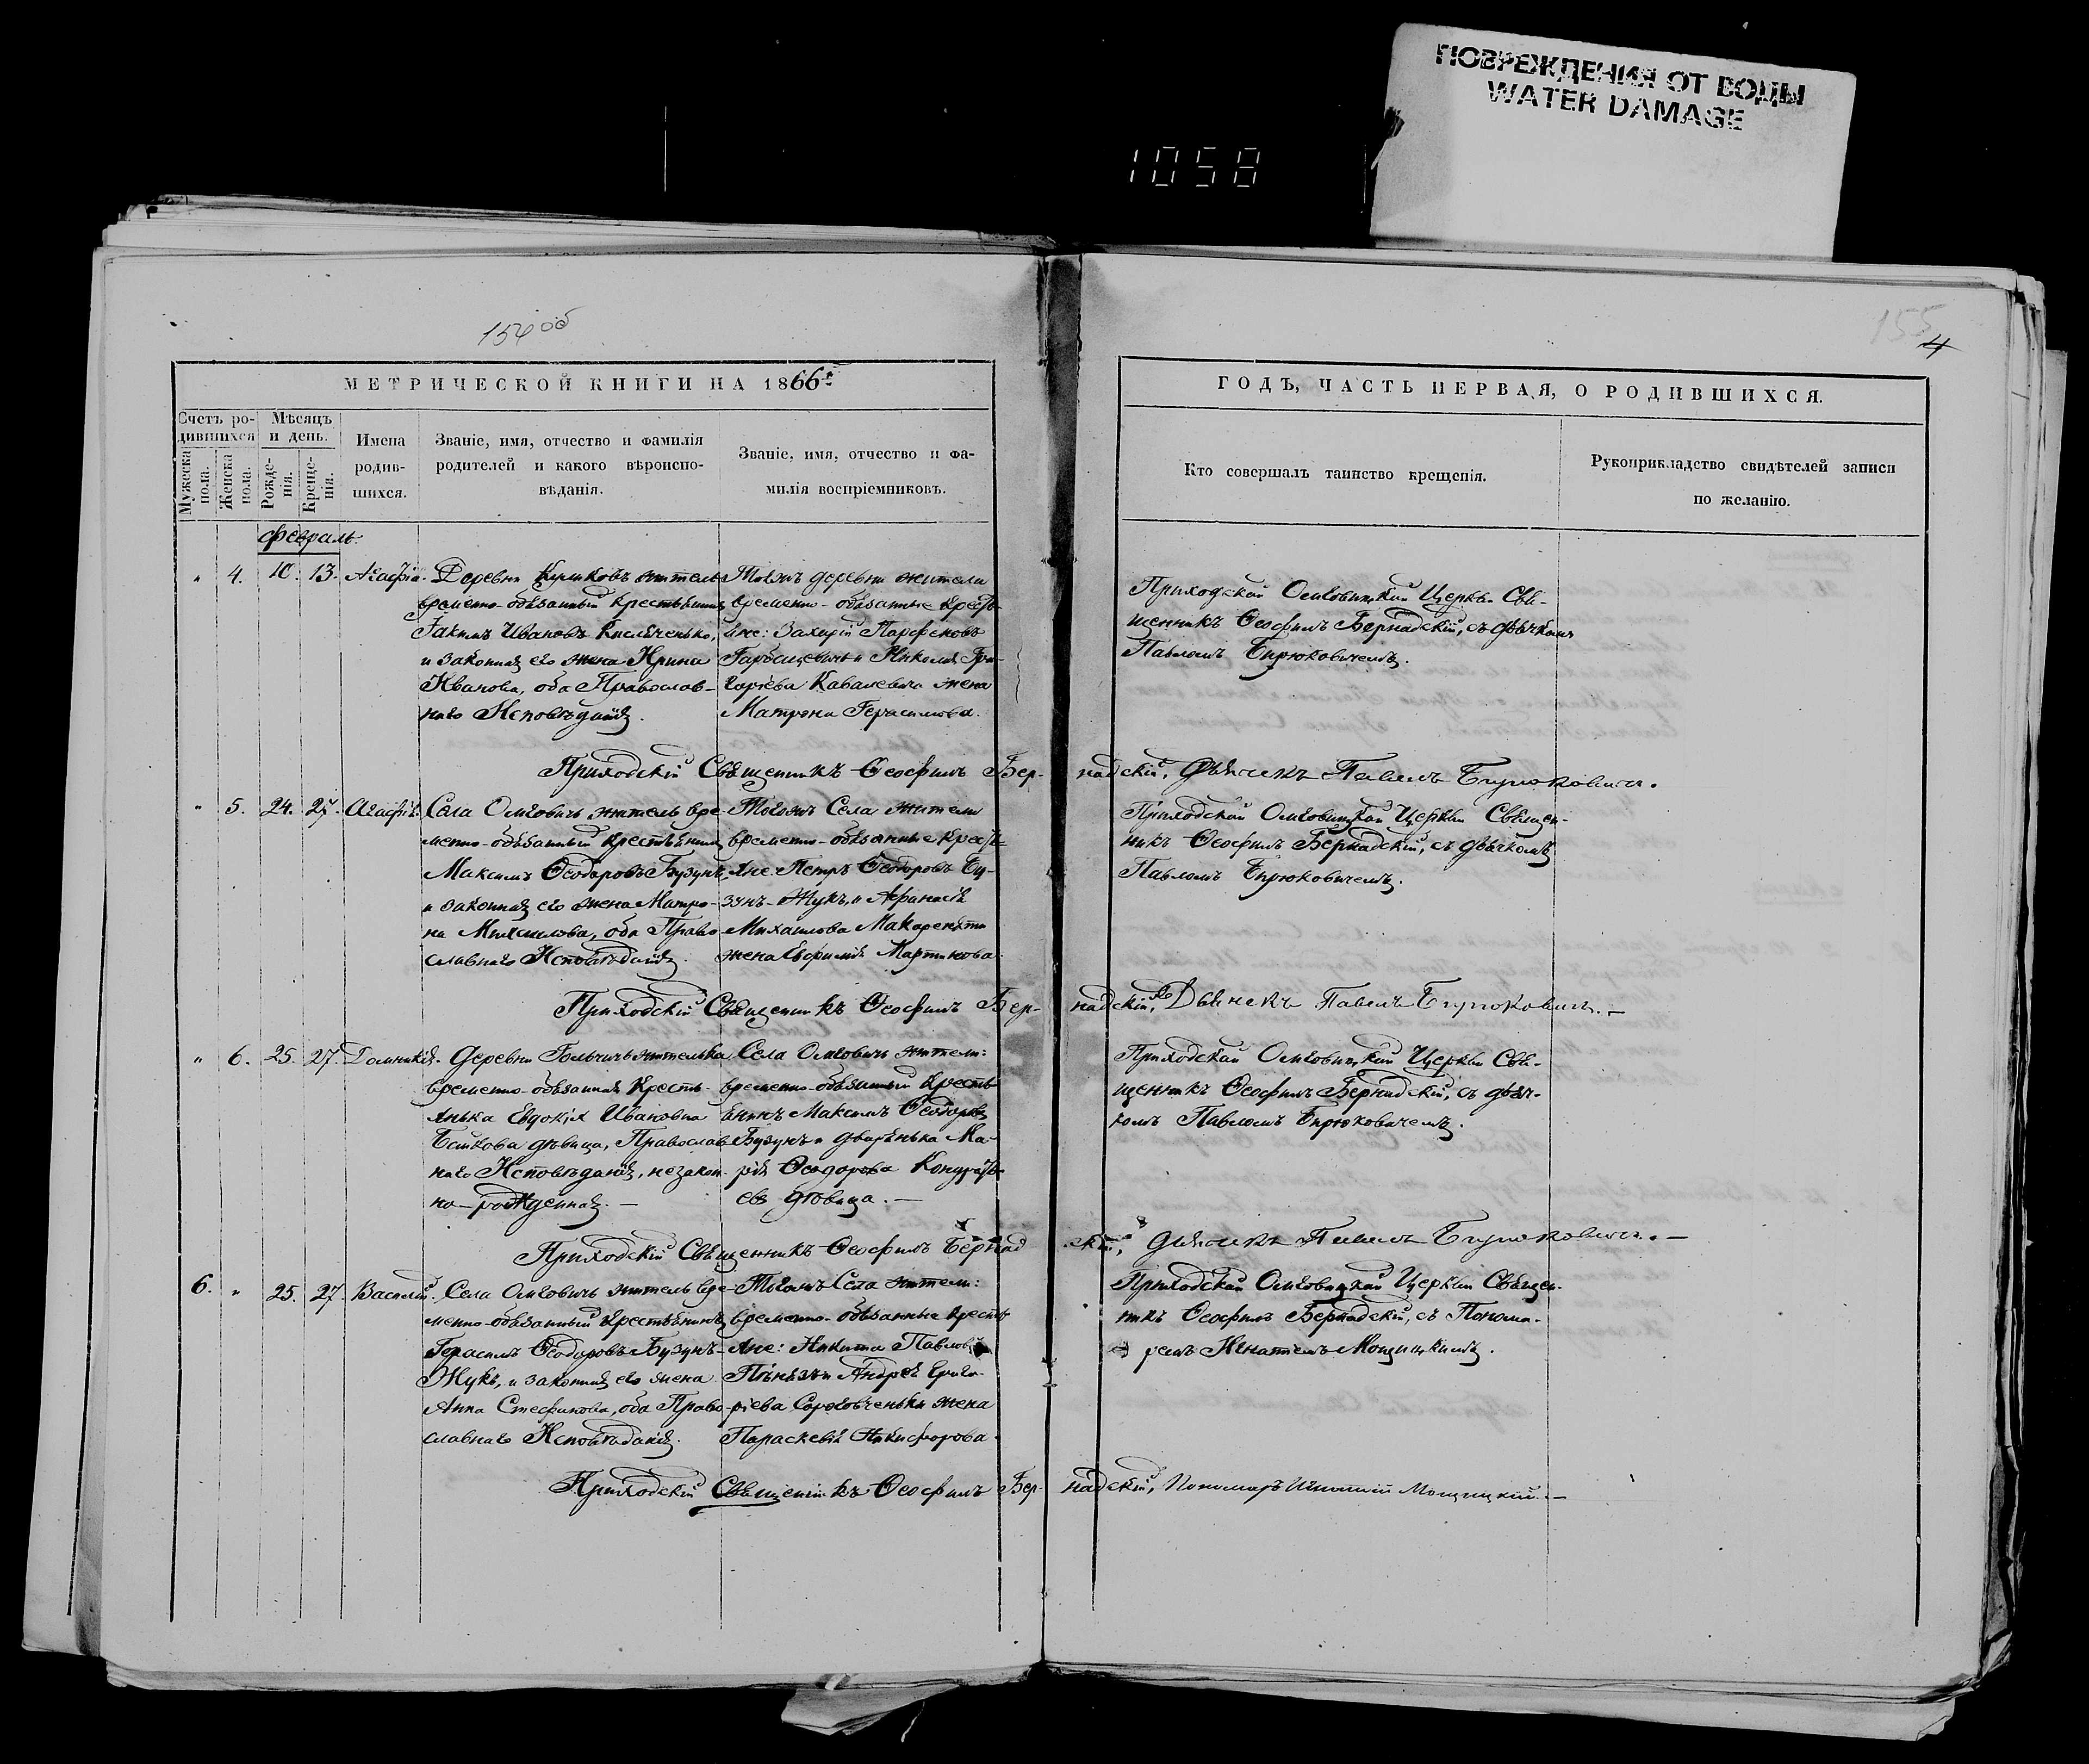 ПОВРЕЖДЕНИЯ ОТ ВОДЫ
WATER DAMAGE
1058
154 об
155
4
МЕТРИЧЕСКОЙ КНИГИ НА 1866й
ГОДЪ, ЧАСТЬ ПЕРВАЯ, О РОДИВШИХСЯ.
Счетъ ро-
дившихся
Мужеска пола.
Женска пола.
Мѣсяцъ
и день.
Рожде-
нія.
Креще-
нія.
Имена
родив-
шихся.
Званіе, имя, отчество и фамилія
родителей и какого вѣроиспо-
вѣданія.
Званіе, имя, отчество и фа-
милія воспріемниковъ.
Кто совершалъ таинство крещенія.
Рукоприкладство свидѣтелей записи
по желанію.
Февраль.
" 4. 10. 13. Агафія.
Деревни житель
временно-обязанный крестьянинъ
Іакимъ Ивановъ
и законная его жена Ирина
Иванова, оба Православ-
наго Исповѣданія.
Тойжъ деревни жители
временно-обязанные кресть-
яне: Захарій Парфеновъ
и Николая Гри-
горьева Кавалевича жена
Матрона Герасимова.
Приходской Церкви Свя-
щенникъ Ѳеофилъ Бернадскій, съ дьячкомъ
Павломъ Бирюковичемъ.
Приходскій Священникъ Ѳеофилъ Бернадскій, Дьячекъ Павелъ Бирюковичъ.
" 5. 24. 27. Агафія.
Села Омговичъ житель вре-
менно-обязанный крестьянинъ
Максимъ Ѳеодоровъ Бузунъ,
и законная его жена Матро-
на Михаилова, оба Право-
славнаго Исповѣданія.
Тогожъ Села жители
временно-обязанные кресть-
яне: Петръ Ѳеодоровъ Бу-
зунъ-Жукъ, и Афанасія
Михаилова
жена Евфимія Мартинова.
Приходской Омговицкой Церкви Священ-
никъ Ѳеофилъ Бернадскій, съ дьячкомъ
Павломъ Бирюковичемъ.
Приходскій Священникъ Ѳеофилъ Бернадскій, Дьячекъ Павелъ Бирюковичъ.
" 6. 25. 27. Домникія.
Деревни жителька
временно-обязанная кресть-
янька Евдокія Ивановна
дѣвица, Православ-
наго Исповѣданія, незакон-
но-рожденная.
Села Омговичъ жители:
временно-обязанный кресть-
янинъ Максимъ Ѳеодоровъ
Бузунъ и дворянька Ма-
рія Ѳеодорова
дѣвица.
Приходской Омговицкой Церкви Свя-
щенникъ Ѳеофилъ Бернадскій, съ дьяч-
комъ Павломъ Бирюковичемъ.
Приходскій Священникъ Ѳеофилъ Бернадскій, Дьячекъ Павелъ Бирюковичъ.
6. " 25. 27. Василій.
Села Омговичъ житель вре-
менно-обязанный крестьянинъ
Герасимъ Ѳеодоровъ Бузунъ-
Жукъ, и законная его жена
Анна Стефанова, оба Право-
славнаго Исповѣданія.
Тогожъ Села жители:
временно-обязанные кресть-
яне: Никита Павловъ
и Андрея Григо-
рьева жена
Параскевія Никифорова.
Приходской Омговицкой Церкви Священ-
никъ Ѳеофилъ Бернадскій, съ Понома-
ремъ Игнатіемъ Мощицкимъ.
Приходскій Священникъ Ѳеофилъ Бернадскій, Пономаръ Игнатій Мощицкій.